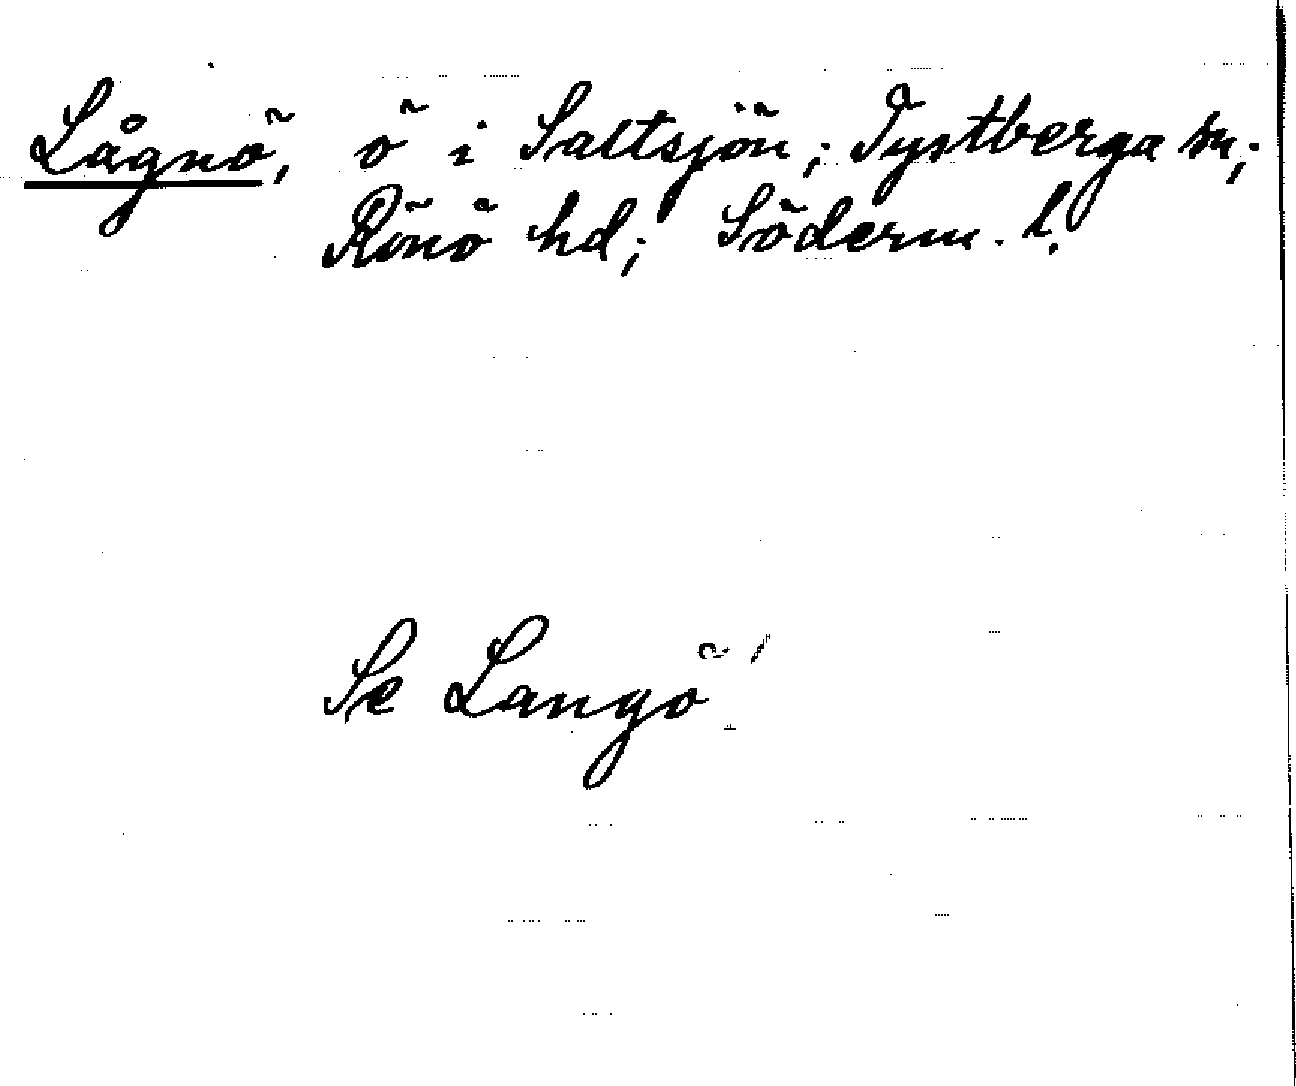 Lågnö, ö i Saltsjön; Tystberga sn;
Rönö hd; Söderm. l.
Se Langö!